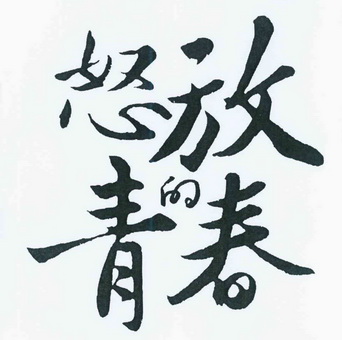 怒放
的
青春